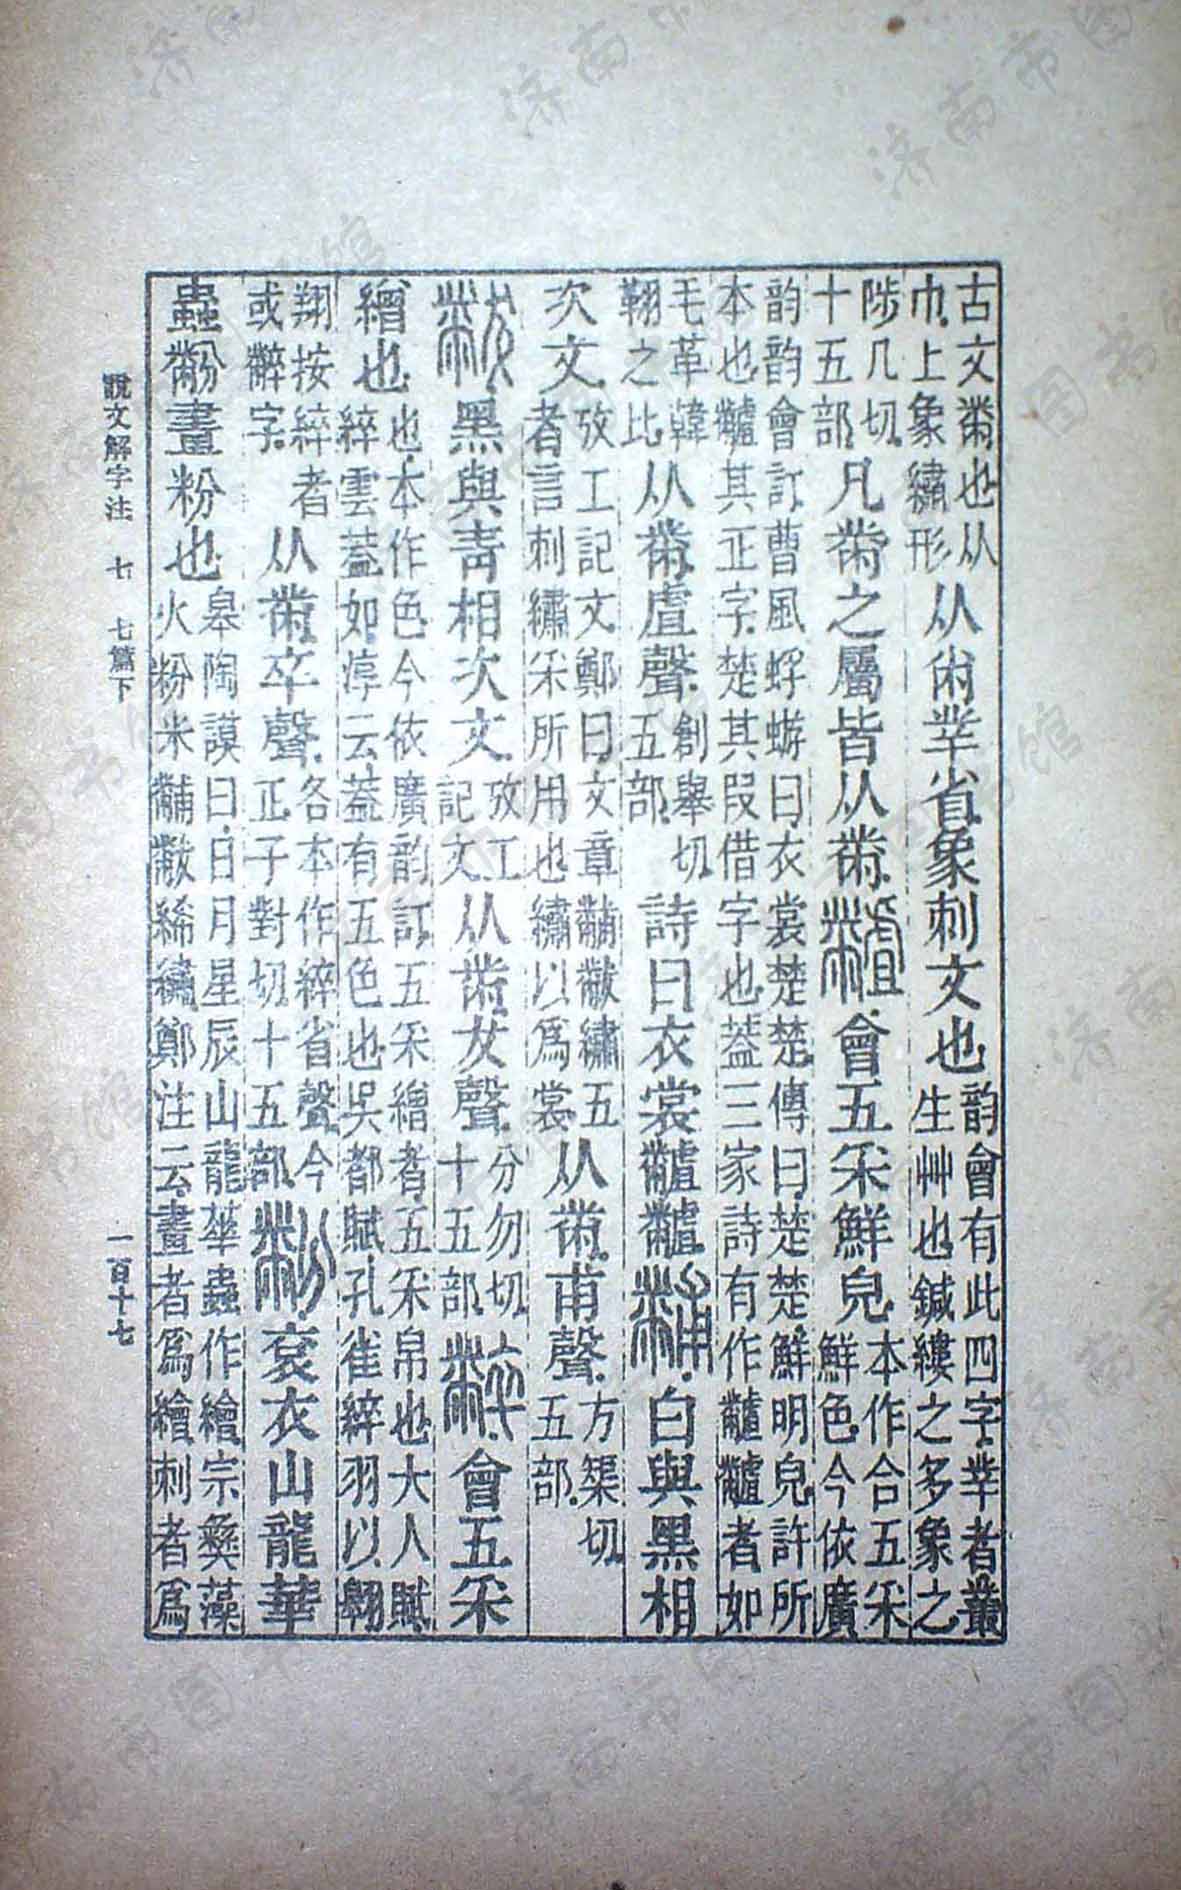 古文黹也从
巾上象繡形
从㡀丵省象刺文也
韵會有此四字丵者叢
生艸也鍼縷之多象之
陟几切
十五部
凡黹之屬皆从黹𪓐會五采鮮皃
本作合五采
鮮色今依廣
韵韵會訂曹風蜉蝣曰衣裳楚楚傳曰楚楚鮮明皃許所
本也𪓐其正字楚其叚借字也葢三家詩有作𪓐𪓐者如
毛革韓
之比
从黹虘聲
創舉切
五部
詩曰衣裳𪓐𪓐黼白與黑相
次文
攷工記文鄭曰文章黼黻繡五
者言刺繡采所用也繡以爲裳
从黹甫聲
方榘切
五部
黻黑與青相次文
攷工
記文
从黹犮聲
分勿切
十五部
𪓌會五采
繒也
也本作色今依廣韵訂五采繒者五采帛也大人賦
綷雲葢如淳云葢有五色也吳都賦孔雀綷羽以翱
翔按綷者
或𪓌字
从黹卒聲
各本作綷省聲今
正子對切十五部
黺衮衣山龍華
蟲黺畫粉也
皋陶謨曰日月星辰山龍華蟲作繪宗彝藻
火粉米黼黻絺繡鄭注云畫者爲繪刺者爲
說文解字注 七 七篇下 一百十七
济南市图书馆